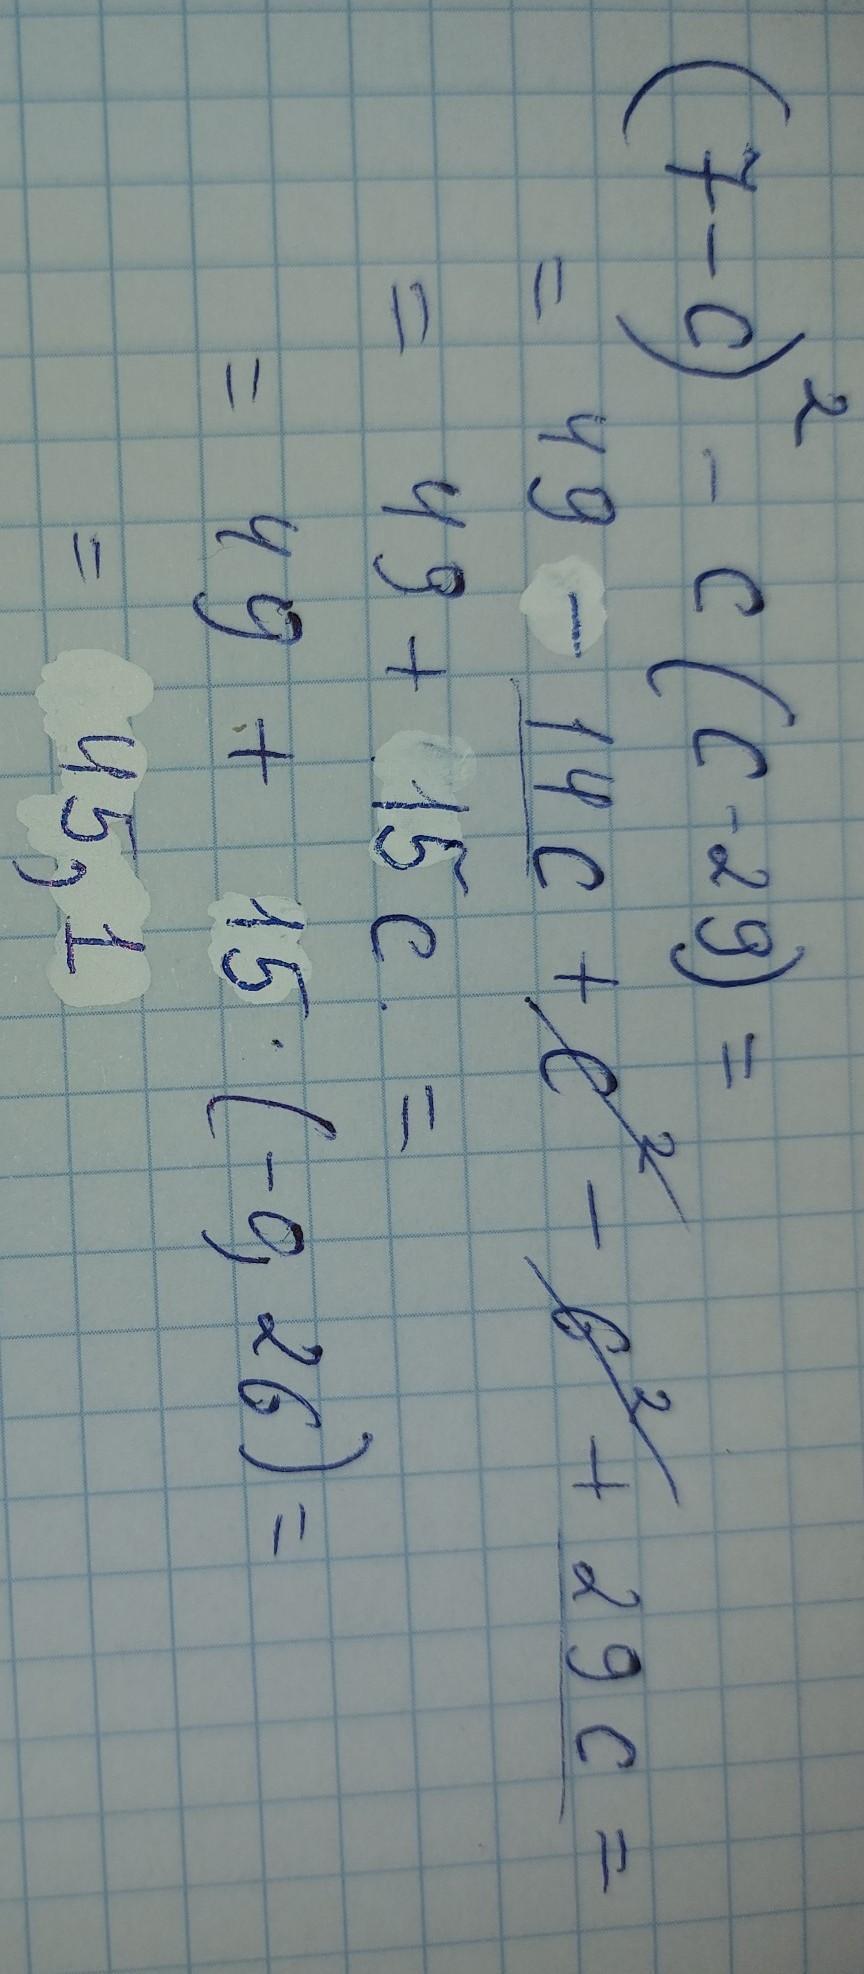 (7-c)² - c(c-29) =
= 49 - 14c + c² - c² + 29c =
= 49 + 15c =
= 49 + 15·(-0,26) =
= 45,1